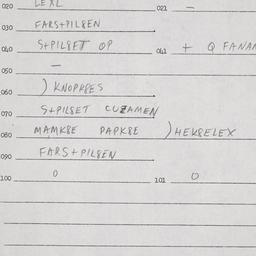 020 LEXL 021 —
030 FARS+PILSEN
040 S+PILSET OP 041 + Q FANAM
050 —
060 ) KNOPKSES
070 S+PILSET CUZAMEN
080 MAMKSE PAPKSE ) HEKSELEX
090 FARS+PILSEN
100 0 101 0